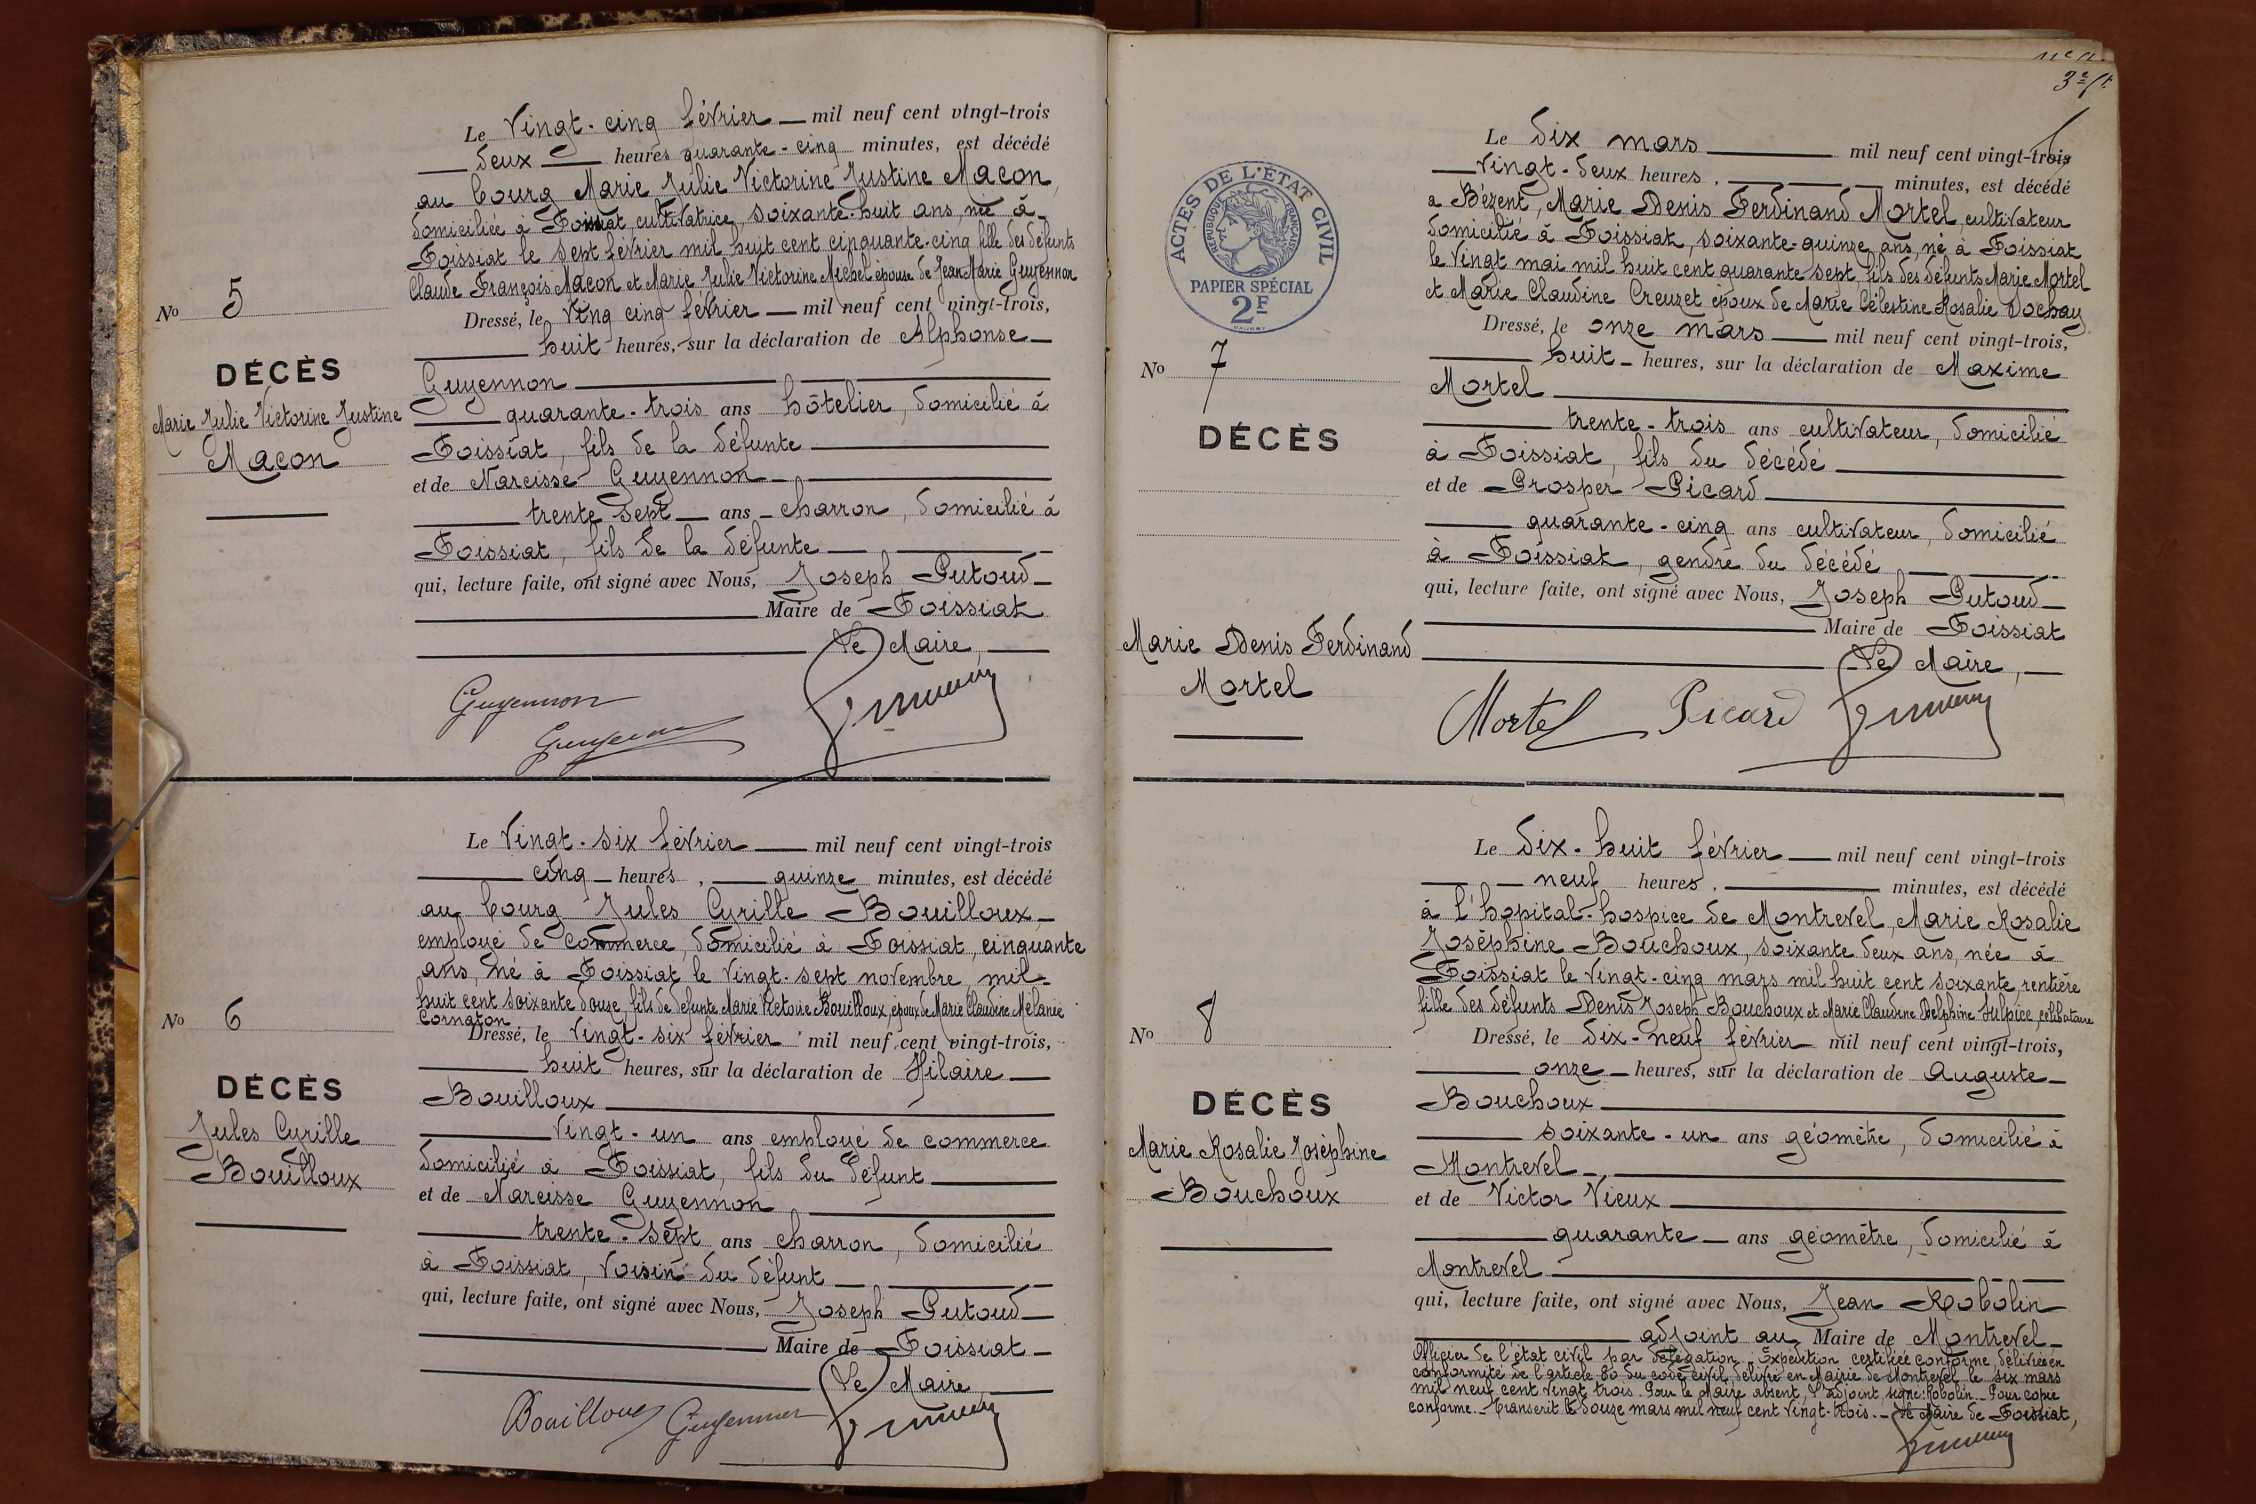 Le Vingt-cinq février mil neuf cent vingt-trois
deux heures quarante-cinq minutes, est décédé
au bourg Marie Julie Victorine Justine Macon,
domiciliée à Foissiat, cultivatrice, soixante-huit ans, née à
Foissiat le sept février mil huit cent cinquante-cinq fille des défunts
Claude François Macon et Marie Julie Victorine Michel épouse de Jean Marie Guyennon
No 5
Dressé, le Ving cinq février mil neuf cent vingt-trois,
huit heures, sur la déclaration de Alphonse
DÉCÈS
Marie Julie Victorine Justine
Macon
Guyennon
quarante-trois ans hôtelier, domicilié à
Foissiat, fils de la défunte
et de Narcisse Guyennon
trente sept ans charron, domicilié à
Foissiat, fils de la défunte
qui, lecture faite, ont signé avec Nous, Joseph Putoud
Maire de Foissiat
Le Maire,
Guyennon
Guyennon
Le Vingt-six février mil neuf cent vingt-trois
cinq heures, quinze minutes, est décédé
au bourg Jules Cyrille Bouilloux
employé de commerce, domicilié à Foissiat, cinquante
ans, né à Foissiat le vingt-sept novembre, mil
huit cent soixante douze, fils de défunte Marie Victoire Bouilloux, époux de Marie Claudine Mélanie
Cornaton
No 6
Dressé, le Vingt-six février mil neuf cent vingt-trois,
huit heures, sur la déclaration de Hilaire
DÉCÈS
Jules Cyrille
Bouilloux
Bouilloux
Vingt-un ans employé de commerce
domicilié à Foissiat, fils du défunt
et de Narcisse Guyennon
trente-sept ans charron, domicilié
à Foissiat, voisin du défunt
qui, lecture faite, ont signé avec Nous, Joseph Putoud
Maire de Foissiat
Le Maire,
Bouilloux Guyennon
3e
ACTES DE L'ÉTAT CIVIL
RÉPUBLIQUE FRANÇAISE
PAPIER SPÉCIAL
2F
Le dix mars mil neuf cent vingt-trois
vingt-deux heures, minutes, est décédé
a Bézent, Marie Denis Ferdinand Mortel, cultivateur
domicilié à Foissiat, soixante-quinze ans, né à Foissiat
le vingt mai mil huit cent quarante-sept, fils des défunts Marie Mortel
et Marie Claudine Creuzet époux de Marie Célestine Rosalie Vochay
Dressé, le onze mars mil neuf cent vingt-trois,
No 7
huit heures, sur la déclaration de Maxime
Mortel
DÉCÈS
trente-trois ans cultivateur, domicilié
à Foissiat, fils du décédé
et de Prosper Picard
quarante-cinq ans cultivateur, domicilié
à Foissiat, gendre du décédé
qui, lecture faite, ont signé avec Nous, Joseph Putoud
Maire de Foissiat
Marie Denis Ferdinand
Mortel
Le Maire,
Mortel Picard
Le dix-huit février mil neuf cent vingt-trois
neuf heures, minutes, est décédé
à l'hopital-hospice de Montrevel, Marie Rosalie
Joséphine Bouchoux, soixante deux ans, née à
Foissiat le vingt-cinq mars mil huit cent soixante, rentière
fille des défunts Denis Joseph Bouchoux et Marie Claudine Delphine Sulpice, celibataire
No 8
Dressé, le dix-neuf février mil neuf cent vingt-trois,
onze heures, sur la déclaration de Auguste
DÉCÈS
Marie Rosalie Joséphine
Bouchoux
Bouchoux
soixante-un ans géomètre, domicilié à
Montrevel
et de Victor Vieux
quarante ans géomètre, domicilié à
Montrevel
qui, lecture faite, ont signé avec Nous, Jean Robolin
adjoint au Maire de Montrevel
Officier de l'état civil par délégation. Expédition certifiée conforme, délivrée en
conformité de l'article 80 du code civil, délivré en Mairie de Montrevel, le six mars
mil neuf cent vingt trois. Pour le Maire absent, l'adjoint, signé: Robolin. Pour copie
conforme. Transcrit le douze mars mil neuf cent vingt-trois. Le Maire de Foissiat,